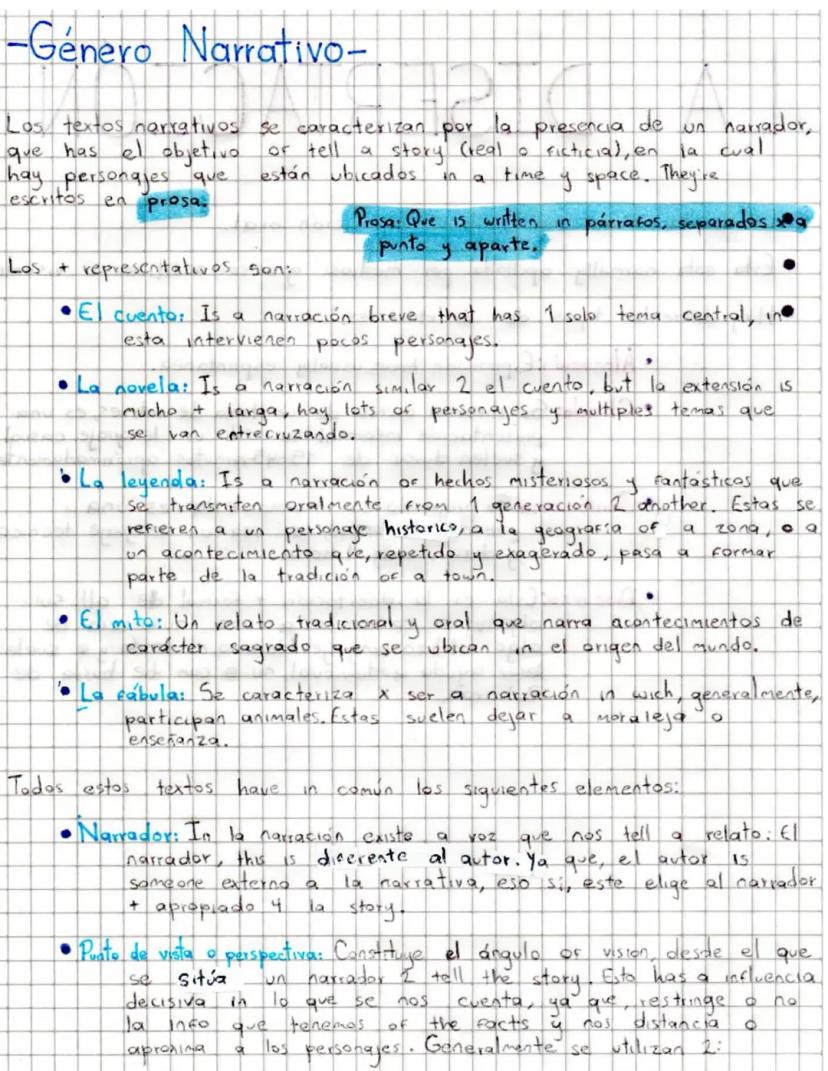 -Género Narrativo-
Los textos narrativos se caracterizan por la presencia de un narrador,
que has el objetivo of tell a story (real o ficticia), en la cual
hay personajes que están ubicados in a time y space. They're
escritos en prosa.
Prosa: Que is written in párrafos, separados x a
punto y aparte.
Los + representativos son:
• El cuento: Is a narración breve that has 1 solo tema central, in
esta intervienen pocos personajes.
• La novela: Is a narración similar 2 el cuento, but la extensión is
mucho + larga, hay lots of personajes y multiples temas que
se van entrecruzando.
• La leyenda: Is a narración of hechos misteriosos y fantásticos que
se transmiten oralmente from 1 generación 2 another. Estas se
refieren a un personaje historico, a la geografía of a zona, o a
un acontecimiento que, repetido y exagerado, pasa a formar
parte de la tradición of a town.
• El mito: Un relato tradicional y oral que narra acontecimientos de
carácter sagrado que se ubican in el origen del mundo.
• La fábula: Se caracteriza x ser a narración in wich, generalmente,
participan animales. Estas suelen dejar a moraleja o
enseñanza.
Todos estos textos have in común los siguientes elementos:
• Narrador: In la narración existe a voz que nos tell a relato: El
narrador, this is diferente al autor. Ya que, el autor is
someone externo a la narrativa, eso sí, este elige al narrador
+ apropiado 4 la story.
• Punto de vista o perspectiva: Constituye el ángulo of visión, desde el que
se sitúa un narrador 2 tell the story. Esto has a influencia
decisiva in lo que se nos cuenta, ya que, restringe o no
la info que tenemos of the facts y nos distancia o
aproxima a los personajes. Generalmente se utilizan 2: